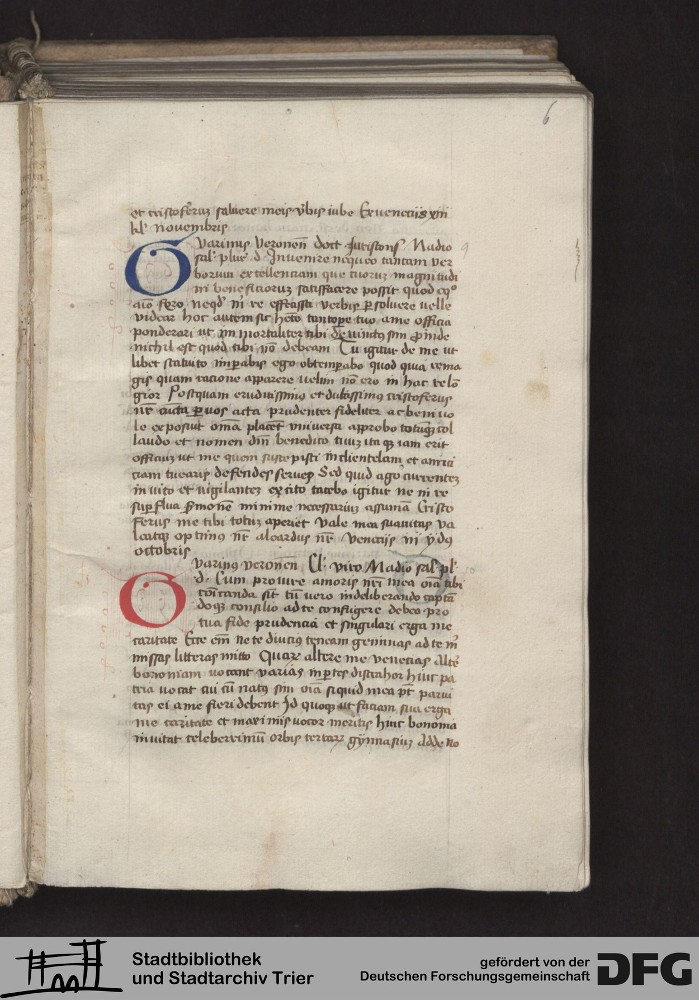 6
et cristoferuȝ salvere meis vbis iube Ex venetiis xiii
kl' novembris
Gvarinus veronen̄ doct Juristons' Madio 9
sal' plur' d' Invenire nequeo tantam ver
borum excellentiam que tuoruȝ magnitudi
ni beneficioruȝ satisfacere possit quod eqº
aīo fero neqd' ī re effeassa verbis psoluere velle
videar hoc autem sit heto tantope tuo ame officia
ponderari ut īmortaliter tibi devinctus sim proinde
nichil est quod tibi nō debeam Tu igitur de me ut
libet statuito impabis ego obtempabo quod quia re ma
gis quam ratione apparere velim nō ero in hac re lon
gior Postquam eruditissimus et dulcissimus cristoferus
nr̄ cuncta per vos acta prudenter fideliter ac benivo
le exposuit omīa placet universa approbo totumqȝ col
laudo et nomen dn̄i benedicto tivuȝ itaqȝ iam erit
officiuȝ ut me quem suscepisti in clientelam et amici
ciam tuearis defendes serves Sed quid ago currenteȝ
invito et vigilantez excito tacebo igitur ne in re
superflua s'monem minime necessariuȝ assumā Cristo
ferus me tibi totuȝ aperiet vale mea suavitas va
leatqȝ optimus nr̄ aleardus nr̄ Venetiis iii ydus
octobris
Gvarinus veronen̄ Cl' viro Madio sal' pl' 10
d' Cum pro iure amoris nr̄i mea oīa tibi
cōicanda sīt tū vero in deliberando captā
doqȝ consilio ad te confugere debeo pro
tua fide prudencia et singulari erga me
caritate Ecce em̄ ne te diutius teneam geminas ad te ī
missas litteras mitto Quare altere me venetias alte
bononiam vocant varias in ptes distrahor hinc pa
tria vocat cui cū natus sim oīa siquid mea pt parvi
tas ei ame fieri debent Id quoqȝ ut faciam sua erga
me caritate et maximis vocor meritis hinc bononia
invitat celeberrimū orbis terrarȝ gymnasiuȝ Adde no
Stadtbibliothek
und Stadtarchiv Trier
gefördert von der
Deutschen Forschungsgemeinschaft
DFG